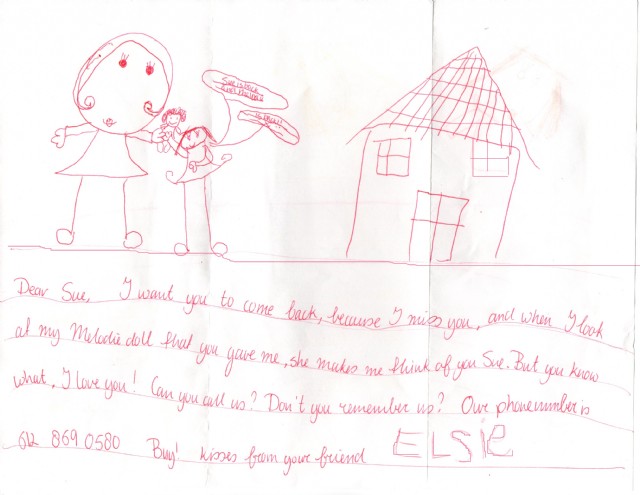 Sue is back
Dear Sue, I want you to come back, because I miss you, and when I look
at my Melodie doll that you gave me, she makes me think of you Sue. But you know
what, I love you! Can you call us? Don't you remember us? Our phonenumber is
612 869 0580 Buy! kisses from your friend ELSIE